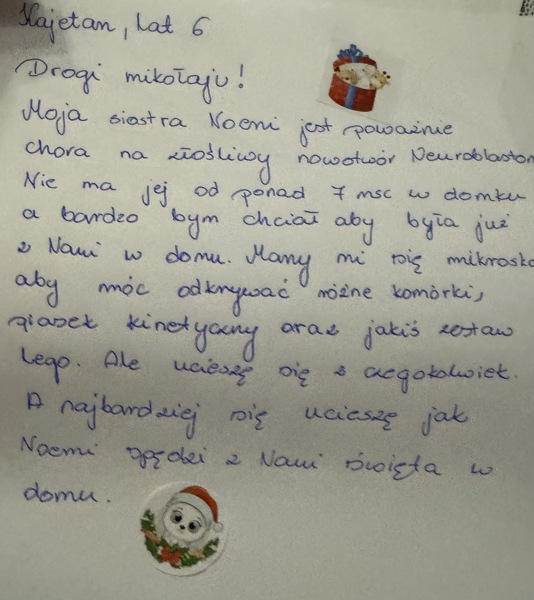 Kajetan, Lat 6
Drogi mikołaju!
Moja siostra Noemi jest poważnie
chora na złośliwy nowotwór Neuroblastom
Nie ma jej od ponad 7 msc w domku
a bardzo bym chciał aby była już
z Nami w domu. Marzy mi się mikrosko
aby móc odkrywać różne komórki,
piasek kinetyczny oraz jakiś zestaw
Lego. Ale ucieszę się z czegokolwiek.
A najbardziej się ucieszę jak
Noemi spędzi z Nami święta w
domu.